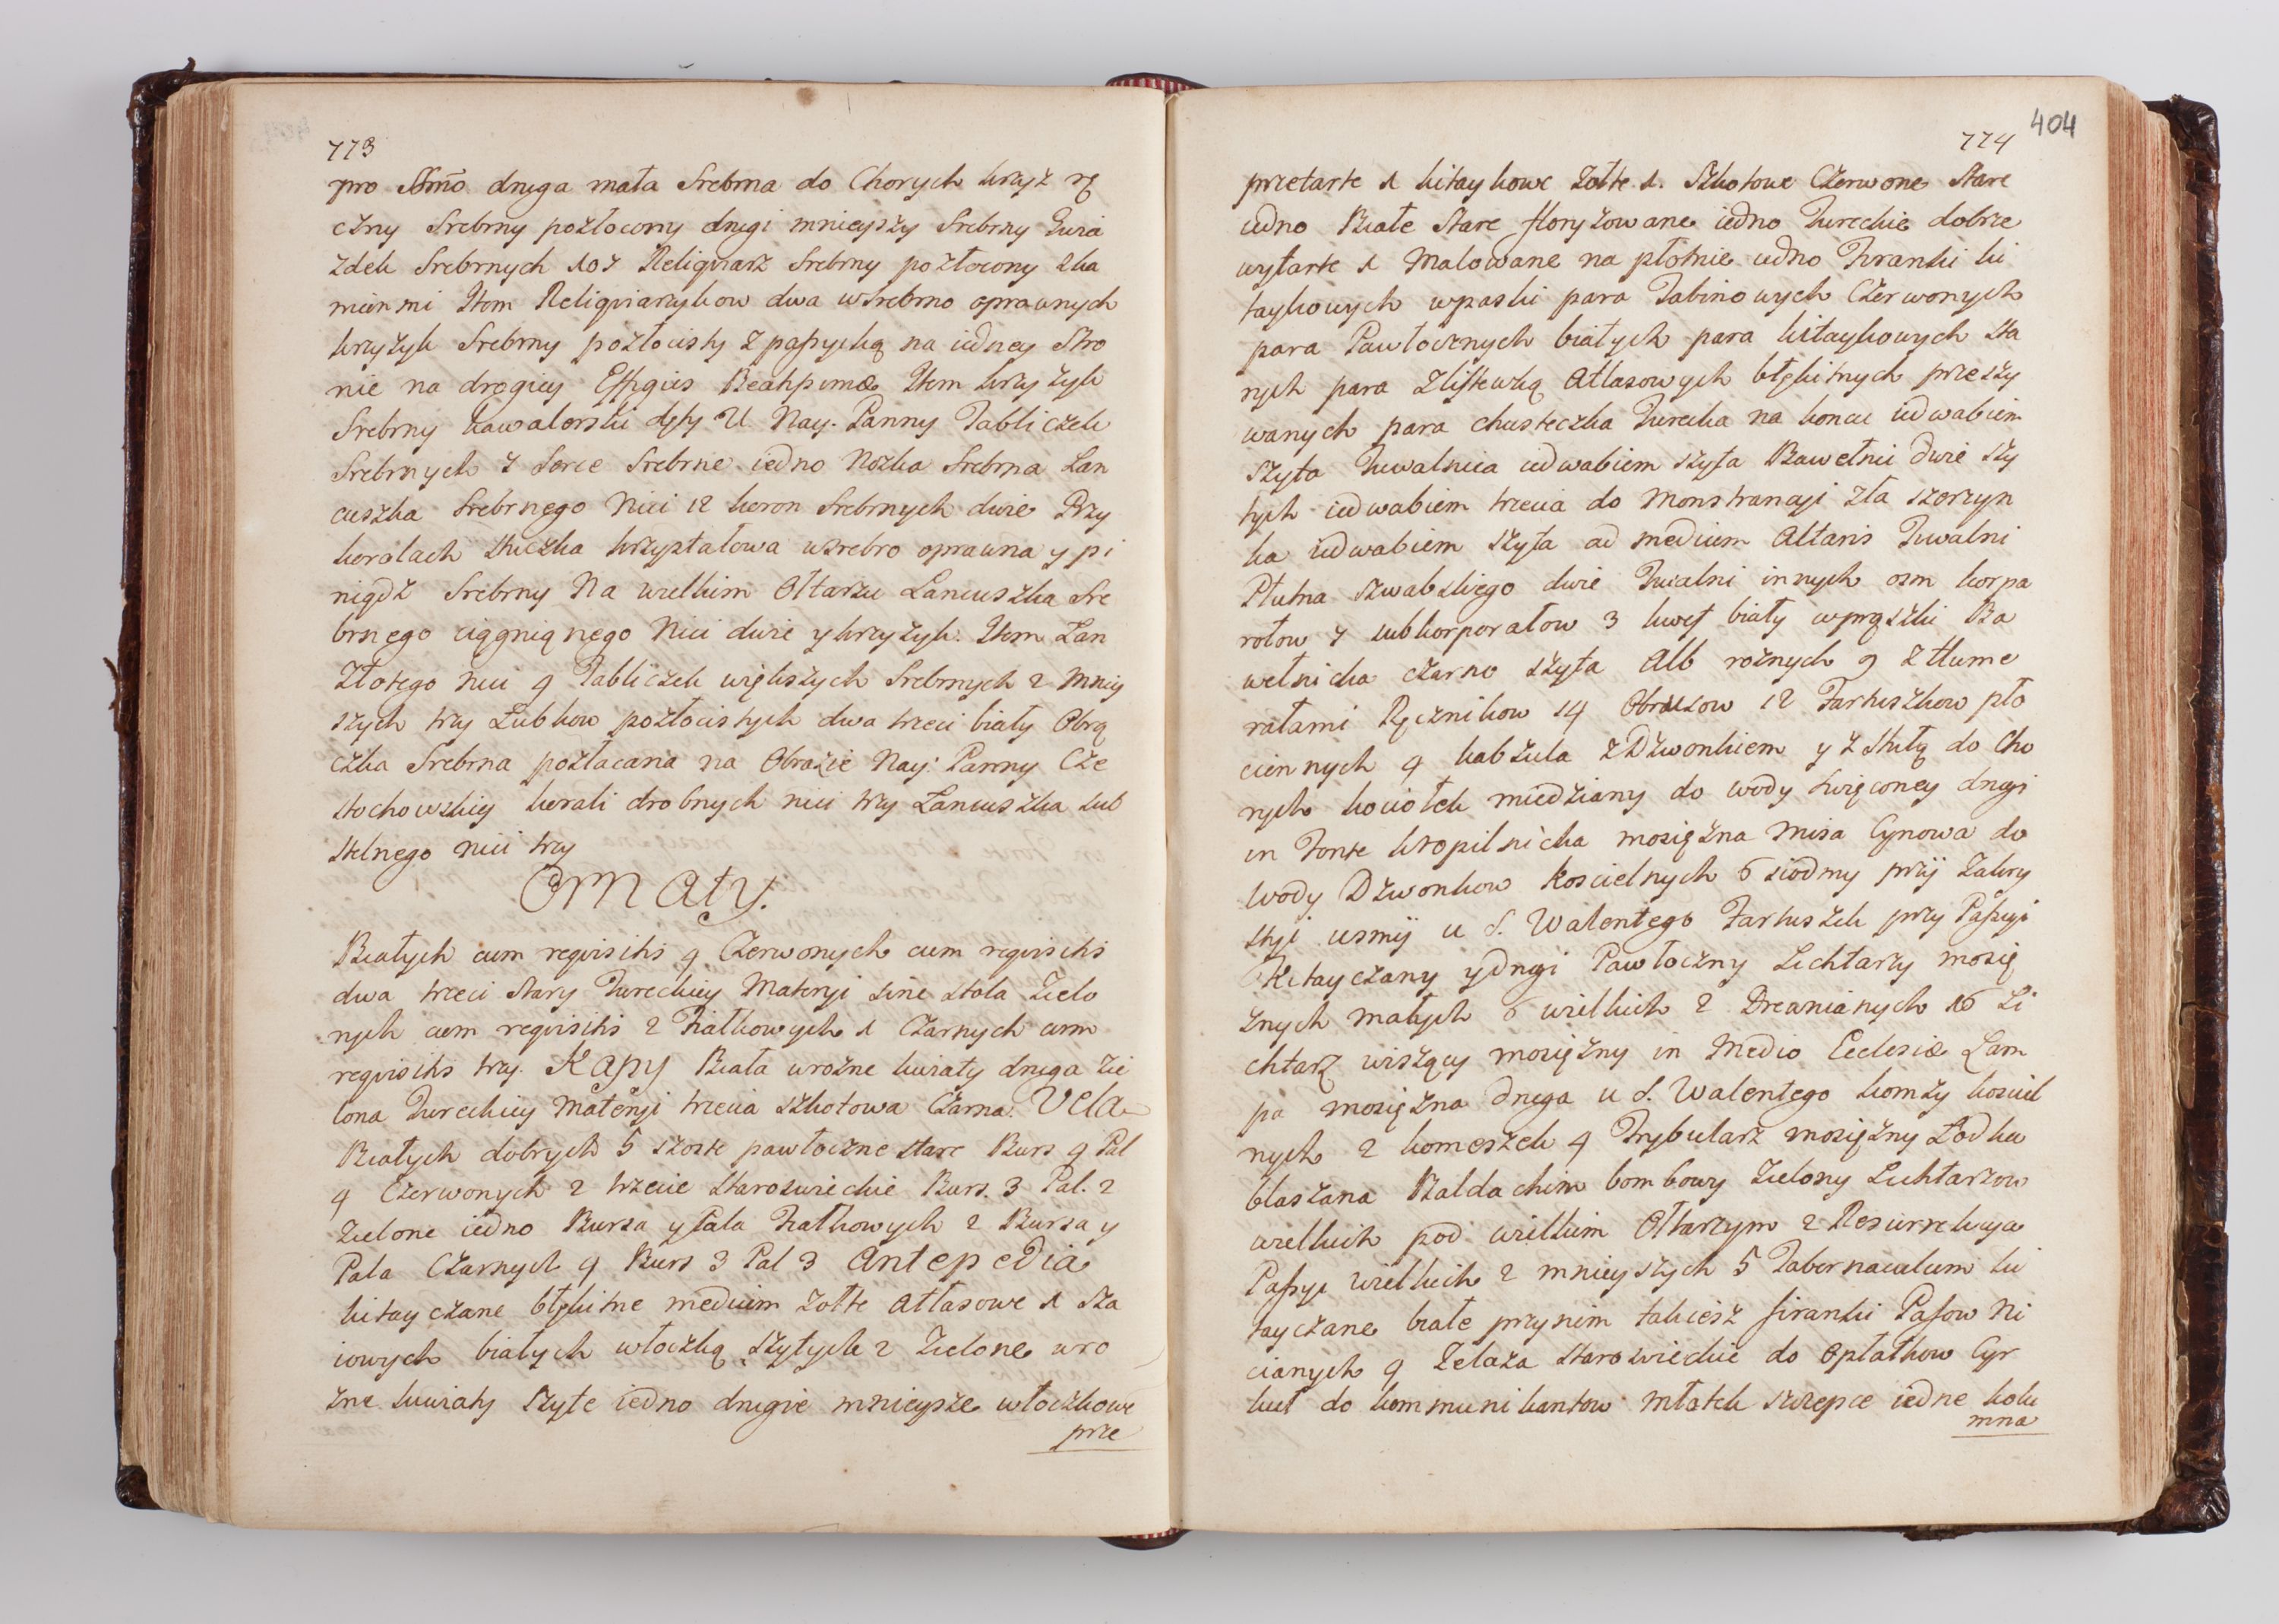 773
pro SSmo druga mała Srebrna do Chorych krzyż rę
czny Srebrny pozłocony drugi mnieyszy Srebrny Gwia
zdek Srebrnych 107 Reliqviarz Srebrny pozłocony zka
mienmi Item Reliqviarzykow dwa wsrebrno oprawnych
krzyżyk Srebrny pozłocisty z passyiką na iedney Stro
nie na drogiey Effigies Beatissimæ Item krzyżyk
Srebrny kawalerski dęty U Nay. Panny Tabliczek
Srebrnych 7 Serce Srebrne iedno Nożka Srebrna Łan
cuszka Srebrnego Nici 12 koron Srebrnych dwie Przy
koralach sztuczka kryształowa wsrebro oprawna y pi
niądz Srebrny Na wielkim Ołtarzu Łancuszka Sre
brnego ciągniąnego Nici dwie y krzyżyk. Item Łan
Złotego nici 9 Tabliczek większych Srebrnych 2 mniey
szych trzy Łubkow pozłocistych dwa trzeci biały Obrą
czka Srebrna pozłacana na Obrazie Nay: Panny Cze
stochowskiey korali drobnych nici trzy Łancuszka sub
stelnego nici trzy
Ornaty.
Białych cum reqvisitis 9 Czerwonych cum reqvisitis
dwa trzeci stary Tureckiey Materyi sine stola Zielo
nych cum reqvisitis 2 Fiałkowych 1 Czarnych cum
reqvisitis trzy. Kapy Biała wrożne kwiaty druga Zie
lona Tureckiey Materyi trzecia szkotowa Czarna. Vela
Białych dobrych 5 szoste pawłoczne stare Burs 9 Pal
9 Czerwonych 2 trzecie staroswieckie Burs. 3 Pal. 2
Zielone iedno Bursa y Pala Fiałkowych 2 Bursa y
Pala Czarnych 9 Burs 3 Pal 3 Antepedia
kitayczane błękitne medium żołte Atłasowe 1 Sza
iowych białych włoczką szytych 2 Zielone wro
żne kwiaty szyte iedno drugie mnieysze włoczkowe
prze
404
774
przetarte 1 kitaykowe żołte 1. Szkotowe Czerwone Stare
iedno Białe Stare floryzowane iedno Tureckie dobrze
wytarte 1 Malowane na płotnie iedno Firanki ki
taykowych wpaski para Tabinowych Czerwonych
para Pawłocznych białych para kitaykowych sta
rych para Zlisztewką Atłasowych błękitnych przeszy
wanych para chusteczka Turecka na koncu iedwabiem
szyta Tuwalnica iedwabiem szyta Bawełnic dwie szy
tych iedwabiem trzecia do Monstrancyi zła szorzyn
ka iedwabiem szyta ad medium Altaris Tuwalni
Płutna szwabskiego dwie Tuwalni innych osm korpa
rołow 7 subkorporałow 3 kwef biały wprąszki Ba
wełnicka czarno szyta Alb rożnych 9 z Hume
rałami Ręcznikow 14 Obrusow 12 Fartuszkow pło
ciennych 9 kabzula z Dzwonkiem y z Stułą do Cho
rych kociołek miedziany do wody święconey drugi
in Fonte kropilnicka mosiężna misa Cynowa do
wody Dzwonkow kościelnych 6 siodmy przy Zakry
styi usmy u S. Walentego Fartuszek przy Passyi
Kitayczany y drugi Pawłoczny Lichtarzy mosię
żnych małych 6 wielkich 2 Drewnianych 16 Li
chtarz wiszący mosiężny in Medio Eeclesiæ Lam
pa mosiężna druga u S. Walentego komży kościel
nych 2 komeszek 9 Trybularz mosiężny Łodka
blaszana Baldachim bombowy Zielony Lichtarzow
wielkich pod wielkim Ołtarzym 2 Resurrekcya
Passyi wielkich 2 mnieyszych 5 Tabernaculum ki
tayczane białe przynim takiesz firanki Pasow Ni
cianych 9 Żelaza staroswieckie do Opłatkow Cyr
kuł do kommunikantow Młotek szczepce iedne kolu
mna